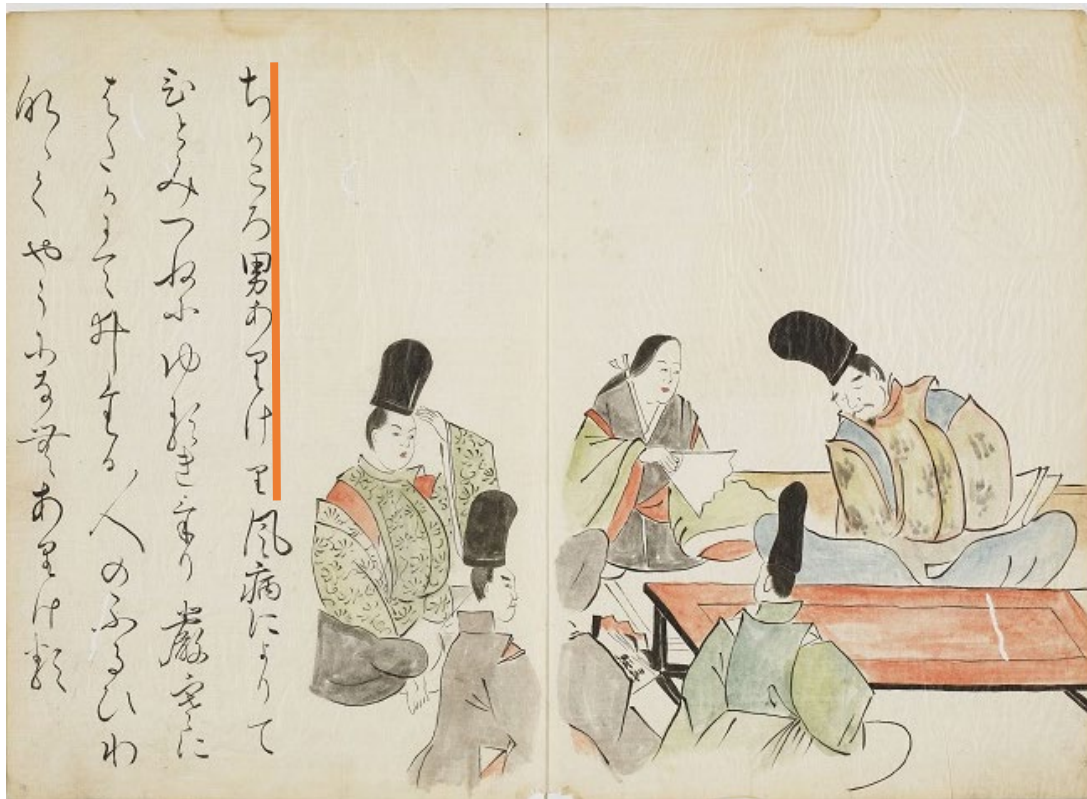 ちかころ男ありけり風病によりて
ひとみつねにゆるきけり厳寒に
はたかにてゐたる人のふるひわ
なゝくやうになむありける